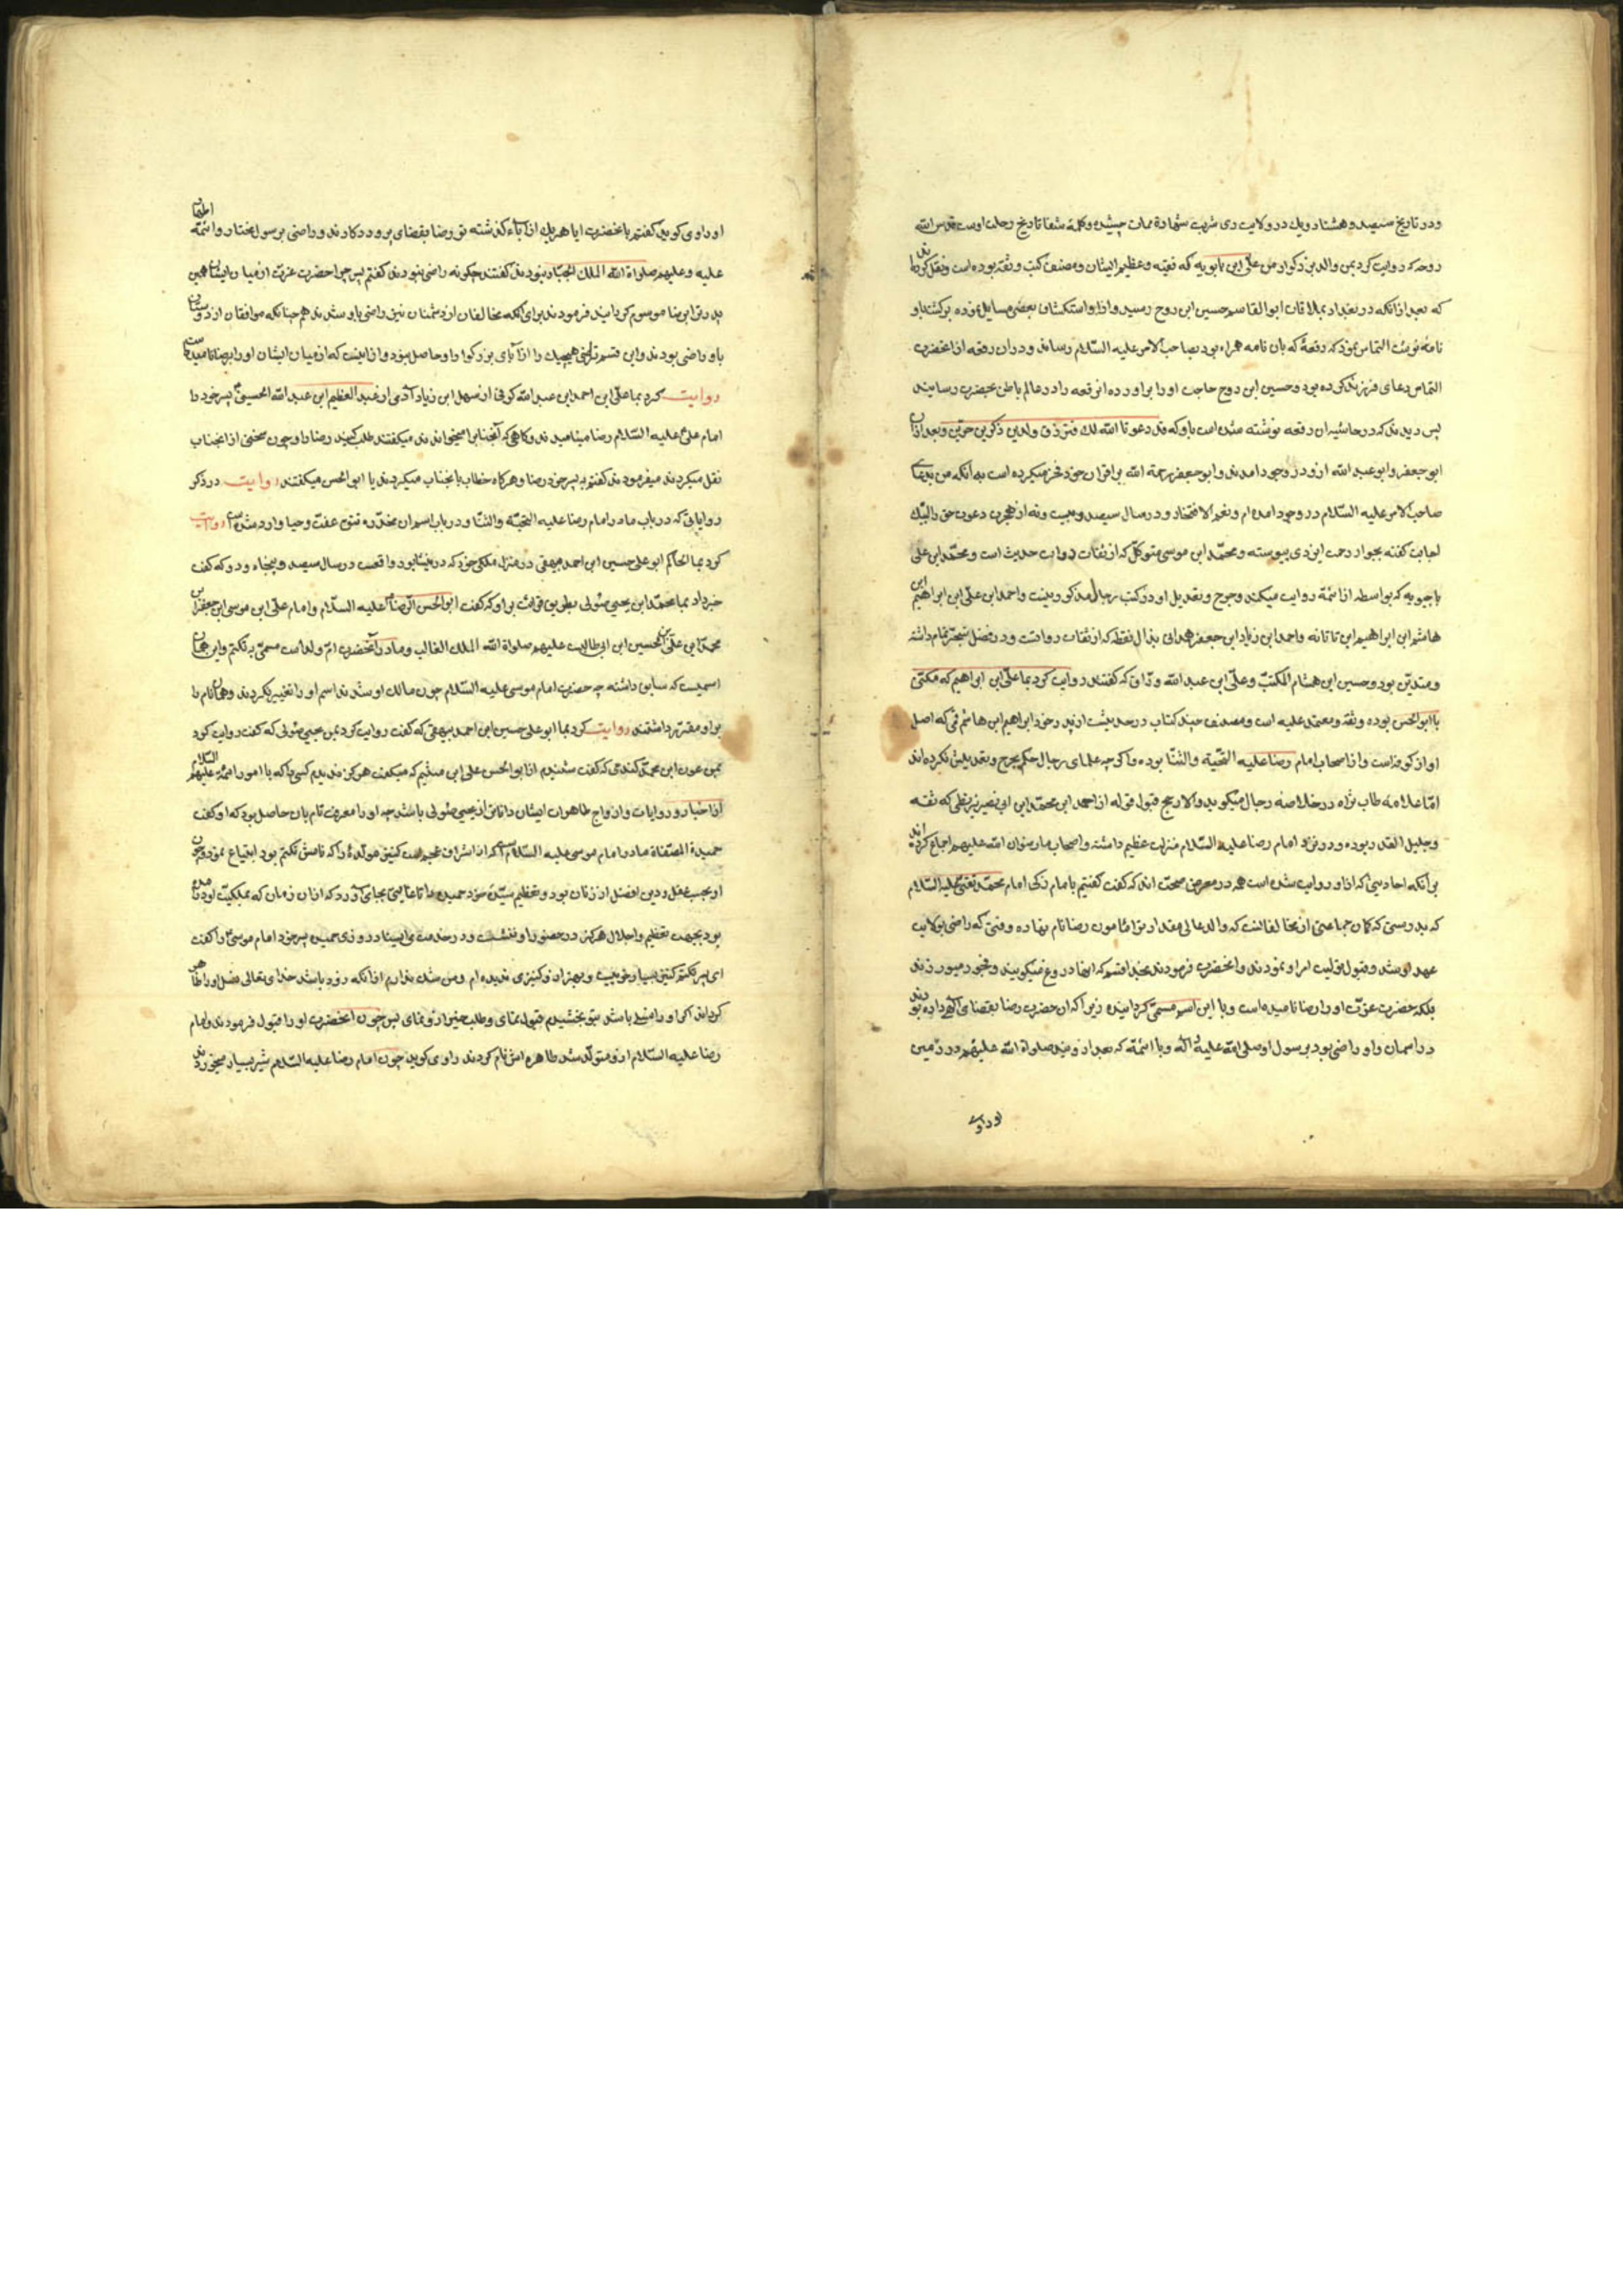 ودر تاریخ سیصد و هشتاد و یك در ولایت ری شربت شهادة ممات چشیده وکلمهٔ شفا تاریخ رحلت اوست قدس الله
روحه که روایت کرد بمن والد بزرگوار من علی ابن بابویه که فقیه وعظیم الشان ومصنف کتب وثقة بوده است ونقل کرده‌اند
که بعد از انکه در بغداد بملاقات ابو القاسم حسین ابن روح رسید وازو استکشاف بعضی مسایل نموده برگشت باو
نامه نوشت التماس نمود که رقعهٔ که بان نامه همراه بود بصاحب الامر علیه السلام رساند ودران رقعه از انحضرت
التماس دعای فرزند کرده بود وحسین ابن روح حاجت او را براورده انرقعه را در عالم باطن بحضرت رسانید
پس دیدند که در حاشیه ان رقعه نوشته شده است باو که قد دعونا الله لك فترزق ولدین ذکرین خیرین وبعد ازان
ابو جعفر وابو عبد الله ازو در وجود امدند وابو جعفر رحمة الله براقران خود فخر میکرده است به انکه من بدعای
صاحب الامر علیه السلام در وجود امده ام ونعم الافتخار ودر سال سیصد وبیست ونه از هجرت دعوت حق را لبیك
اجابت گفته بجوار رحمت ایزدی پیوسته ومحمد ابن موسی متوکل که از ثقات روات حدیث است ومحمد ابن علی
ماجیویه که بواسطه از ائمة روایت میکند وجرح وتعدیل او در کتب رجال مذکور نیست واحمد ابن علی ابن ابراهیم ابن
هاشم ابن ابراهیم ابن تاتانه واحمد ابن زیاد ابن جعفر همدانی بذال نقطه که از ثقات روات ودر فضل تبحر تمام داشته
ومتدین بود وحسین ابن هشام المکتب وعلی ابن عبد الله وراق که گفتند روایت کرد بما علی ابن ابراهیم که مکنی
با ابو الحسن بوده وثقة ومعتمد علیه است ومصنف چند کتاب در حدیث از پدر خود ابراهیم ابن هاشم قمی که اصل
او از کوفه است واز اصحاب امام رضا علیه التحیة والثنا بوده واگرچه علمای رجال حکم بجرح وتعدیلش نکرده‌اند
اما علامه طاب ثراه در خلاصه رجال میگوید والارجح قبول قوله از احمد ابن محمد ابن ابی نصر بزنطی که ثقه
وجلیل القدر بوده ودر نزد امام رضا علیه السلام منزلت عظیم داشته واصحاب ما رضوان الله علیهم اجماع کرده اند
برانکه احادیثی که ازو روایت شده است همه در معرض صحت اند که گفت گفتم با امام زکی امام محمد تقی علیه السلام
که بدرستی که گمان جماعتی از مخالفانست که والد عالی مقدار ترا مامون رضا نام نهاده وقتی که راضی بولایت
عهد او شد وقبول تولیت امر او نمودند وانحضرت فرمودند بخدا قسم که اینها دروغ میگویند وفجور میورزند
بلکه حضرت عزت او را رضا نامیده است وبا این اسم مسمی گردانیده زیرا که ان حضرت رضا بقضای الهی داده بودند
در اسمان واو راضی بود برسول او صلی الله علیه واله وبا ائمه که بعد ازویند صلواة الله علیهم در زمین
او راوی
او راوی گوید گفتم با نحضرت ایا هریك از آباء گذشته تو رضا بقضای پروردگار ند وراضی برسول مختار وائمهٔ اطهار
علیه وعلیهم صلواة الله الملك الجبار نبودند گفتند چگونه راضی نبودند گفتم پس چرا حضرت عزت از میان ایشان همین
پدر ترا برضا موسوم گردانید فرمودند برای انکه مخالفان از دشمنان نیز راضی باو شدند همچنانکه موافقان از دوستان
باو راضی بودند واین قسم رضائی هیچیك را از آبای بزرگوار او حاصل نبود وازینست که از میان ایشان او را برضا نامیده‌ است
روایت کرد بما علی ابن احمد ابن عبد الله کوفی از سهل ابن زیاد آدمی از عبد العظیم ابن عبد الله الحسینی پسر خود را
امام علی علیه السلام رضا مینامیدند وگاهی که آنجناب را میخواندند میگفتند طلب کنید رضا را وچون سخنی از انجناب
نقل میکردند میفرمودند گفتم به پسر خود رضا وهرگاه خطاب بانجناب میکردند یا ابو الحسن میگفتند روایت در ذکر
روایاتی که در باب مادر امام رضا علیه التحیة والثنا ودر باب اسم ان مخدره تتق عفت وحیا وارد شده است روایت
کرد بما الحاکم ابو علی حسین ابن احمد بیهقی در منزل ملکی خود که در نیشابور واقعست در سال سیصد وپنجاه ودو که گفت
خبر داد بما محمد ابن یحیی صولی بطریق قرائت براو که گفت ابو الحسن الرضا علیه السلام وامام علی ابن موسی ابن جعفر ابن
محمد ابن علی ابن الحسین ابن ابی طالب علیهم صلواة الله الملك الغالب ومادر آنحضرت ام ولد است مسمی به تکتم واین همان
اسمیست که سابق داشته چه حضرت امام موسی علیه السلام چون مالك او شدند اسم او را تغییر نکردند وهمان نام را
براو مقرر داشتند روایت کرد بما ابو علی حسین ابن احمد بیهقی که گفت روایت کرد بمن یحیی صولی که گفت روایت کرد
بمن عون ابن محمد کندی که گفت شنیدم از ابو الحسن علی ابن میثم که میگفت هرگز ندیدم کسی را که با امور ائمة علیهم السلام
از اخبار وروایات وازواج طاهرات ایشان داناتر از یحیی صولی باشد چه او را معرفت تام بان حاصل بود که او گفت
حمیدة المصفاة مادر امام موسی علیه السلام که از اشراف عجم است کنیز مولدهٔ را که نامش تکتم بود ابتیاع نمود چون
او بحسب عقل ودین افضل از زنان بود وتعظیم سیدهٔ خود حمیده را تا غایتی بجای آورد که از ان زمان که بملکیت او درامده
بود بجهت تعظیم واجلال هرگز در حضور او ننشست ودر خدمت می ایستاد روزی حمیده پسر خود امام موسی را گفت
ای پسر تکتم کنیز بسیار خوبیست وبهتر از و کنیزی ندیده ام ومن شك ندارم از انکه زود باشد خدای تعالی فضل او را ظاهر
گرداند اگر او را نسلی باشد بتو بخشیدم قبول نمای وطلب خیر ازو نمای پس چون انحضرت او را قبول فرمودند وامام
رضا علیه السلام ازو متولد شد طاهره اش نام کردند راوی گوید چون امام رضا علیه السلام شیر بسیار میخوردند